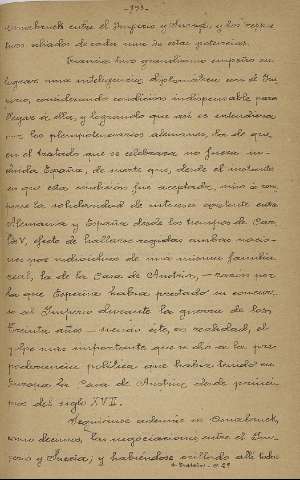 -193-
osnabruck entre el Imperio y Suecia, y los respec-
tivos aliados de cada una de estas potencias.
Francia tuvo grandísimo empeño en
lograr una inteligencia diplomática con el Im-
perio, considerando condición indispensable para
llegar á ella, y logrando que así se entendiera
por los plenipotenciarios alemanes, la de que,
en el tratado que se celebrara no fuera in-
cluida España, de suerte que, desde el momento
en que esta condición fue aceptada, vino á rom-
perse la solidaridad de intereses existente entre
Alemania y España desde los tiempos de Car-
los V, efecto de hallarse regidas ambas nacio-
nes por individuos de una misma familia
real, la de la Casa de Austria, — razón por
la que España había prestado su concur-
so al Imperio durante la guerra de los
Treinta años — siendo éste, en realidad, el
golpe más importante que se dió á la pre-
ponderancia política que había tenido en
Europa la Casa de Austria desde princi-
pios del siglo XVII.
Seguíanse además en Osnabruck,
como decimos, las negociaciones entre el Im-
perio y Suecia; y habiéndose orillado allí todas